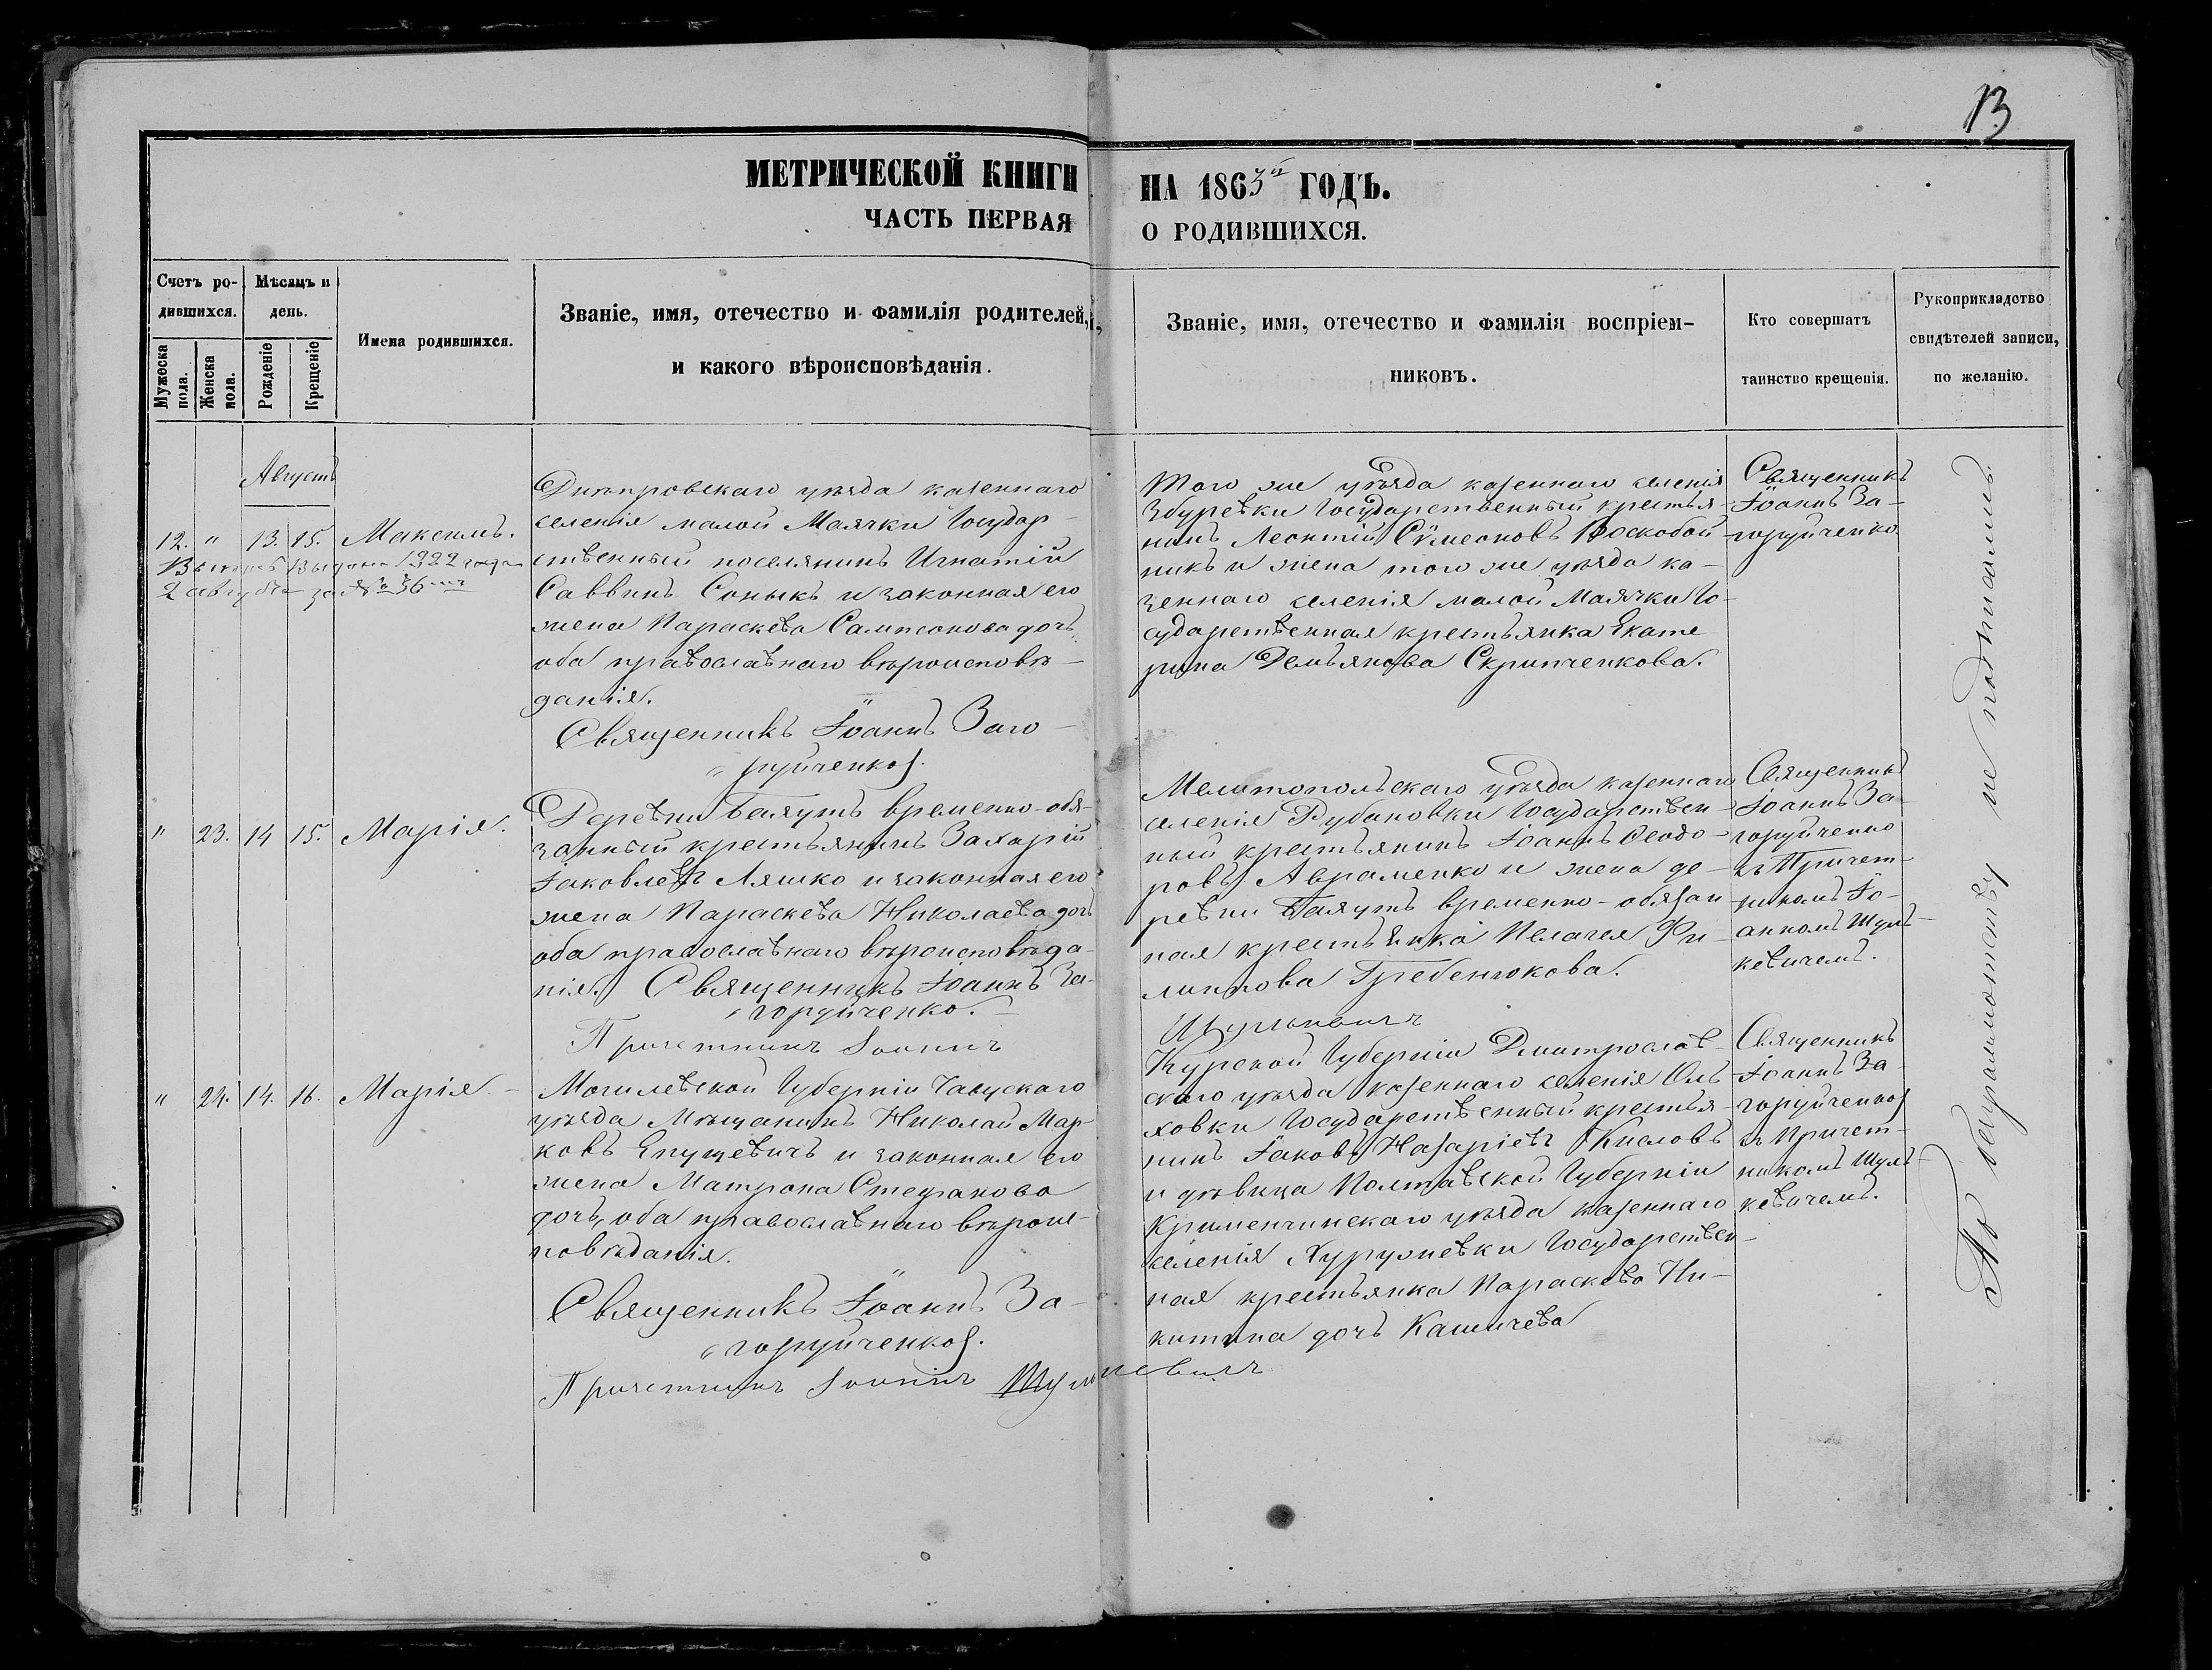 13
МЕТРИЧЕСКОЙ КНИГИ НА 1863й ГОДЪ.
ЧАСТЬ ПЕРВАЯ О РОДИВШИХСЯ.
Счетъ ро-
дившихся.
Мужеска пола.
Женска пола.
Мѣсяцъ и
день.
Рожденіе
Крещеніе
Имена родившихся.
Званіе, имя, отечество и фамилія родителей,
и какого вѣроисповѣданія.
Званіе, имя, отечество и фамилія воспріем-
никовъ.
Кто совершатъ
таинство крещенія.
Рукоприкладство
свидѣтелей записи,
по желанію.
Августъ
12. " 13. 15. Максимъ.
2 августа за № 36
Днѣпровскаго уѣзда казеннаго
селенія малой Маячки Государ-
ственный поселянинъ Игнатій
Саввинъ Соныкъ и законная его
жена Параскева Сампсонова дочь,
оба православнаго вѣроисповѣ-
данія.
Священникъ Іоаннъ Заго-
"руйченко.
Того же уѣзда казеннаго селенія
Збурьевки Государственный крестья-
нинъ Леонтій Сѵмеоновъ Воскобой-
никъ и жена того же уѣзда ка-
зеннаго селенія малой Маячки Го-
сударственная крестьянка Екате
рина Демьянова Скрипченкова.
Священникъ
Іоаннъ За-
горуйченко
" 23. 14 15. Марія.
Деревни Баяутъ временно-обя-
занный крестьянинъ Захарій
Іаковлевъ Ляшко и законная его
жена Параскева Николаева дочь
оба православнаго вѣроисповѣда-
нія. Священникъ Іоаннъ За-
"горуйченко.
Причетникъ Іоаннъ Шулькевичъ
Мелитопольскаго уѣзда казеннаго
селенія Рубановки Государствен-
ный крестьянинъ Іоаннъ Ѳеодо-
ровъ Авраменко и жена де-
ревни Баяутъ временно-обязан-
ная крестьянка Пелагея Фи-
липпова Гребенюкова.
Священникъ
Іоаннъ За-
горуйченко
съ Причет-
никомъ Іо-
анномъ Шуль-
кевичемъ.
" 24. 14. 16. Марія.
Могилевской Губерніи Чаусскаго
уѣзда Мѣщанинъ Николай Мар-
ковъ и законная его
жена Матрона Стефанова
дочь, оба православнаго вѣроис-
повѣданія.
Священникъ Іоаннъ За-
"горуйченко.
Причетникъ Іоаннъ Шулькевичъ
Курской Губерніи Дмитрослав-
скаго уѣзда казеннаго селенія Оль-
ховки Государственный крестья-
нинъ Іаковъ Назаріевъ Кисловъ
и дѣвица Полтавской Губерніи
Крименчинскаго уѣзда казеннаго
селенія Государствен-
ная крестьянка Параскева Ни-
китина дочь Кашичева
Священникъ
Іоаннъ За-
горуйченко
съ Причет-
никомъ Шуль-
кевичемъ.
По неграмотству не подписались.